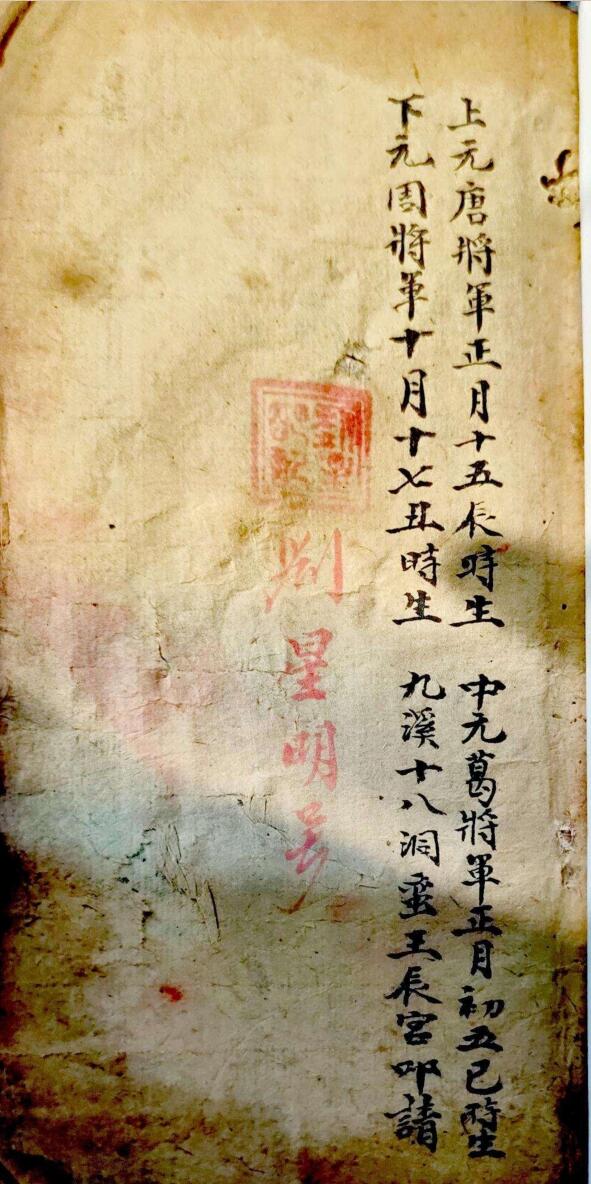 上元唐將軍正月十五辰時生　中元葛將軍正月初五巳時生
下元周將軍十月十七丑時生　九溪十八洞蛮王辰宮叩請
劉星明号